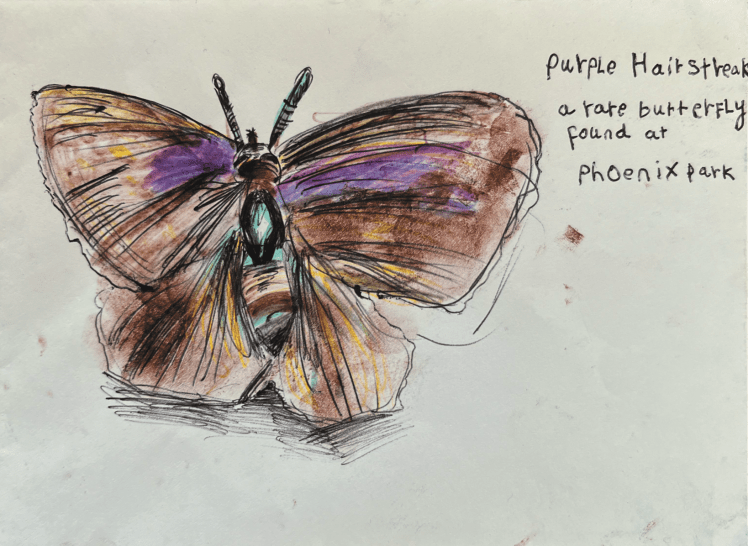 Purple Hairstreak
a rare butterfly
found at
Phoenix park